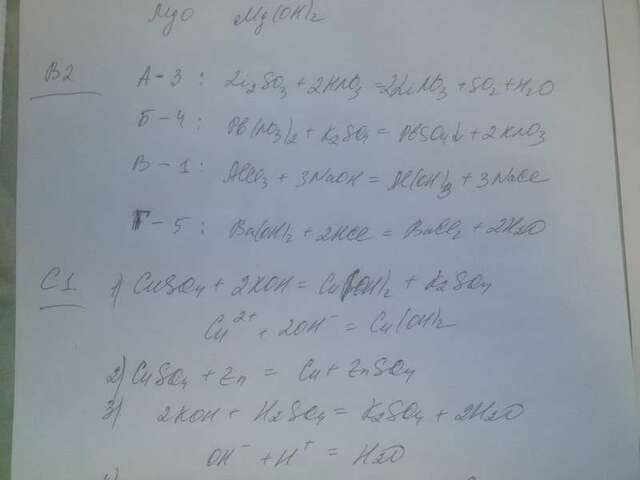 MgO Mg(OH)₂
B2
А-3: Li₂SO₃ + 2HNO₃ = 2LiNO₃ + SO₂ + H₂O
Б-4: Pb(NO₃)₂ + K₂SO₄ = PbSO₄↓ + 2KNO₃
В-1: AlCl₃ + 3NaOH = Al(OH)₃ + 3NaCl
Г-5: Ba(OH)₂ + 2HCl = BaCl₂ + 2H₂O
C1
1) CuSO₄ + 2KOH = Cu(OH)₂ + K₂SO₄
Cu²⁺ + 2OH⁻ = Cu(OH)₂
2) CuSO₄ + Zn = Cu + ZnSO₄
3) 2KOH + H₂SO₄ = K₂SO₄ + 2H₂O
OH⁻ + H⁺ = H₂O